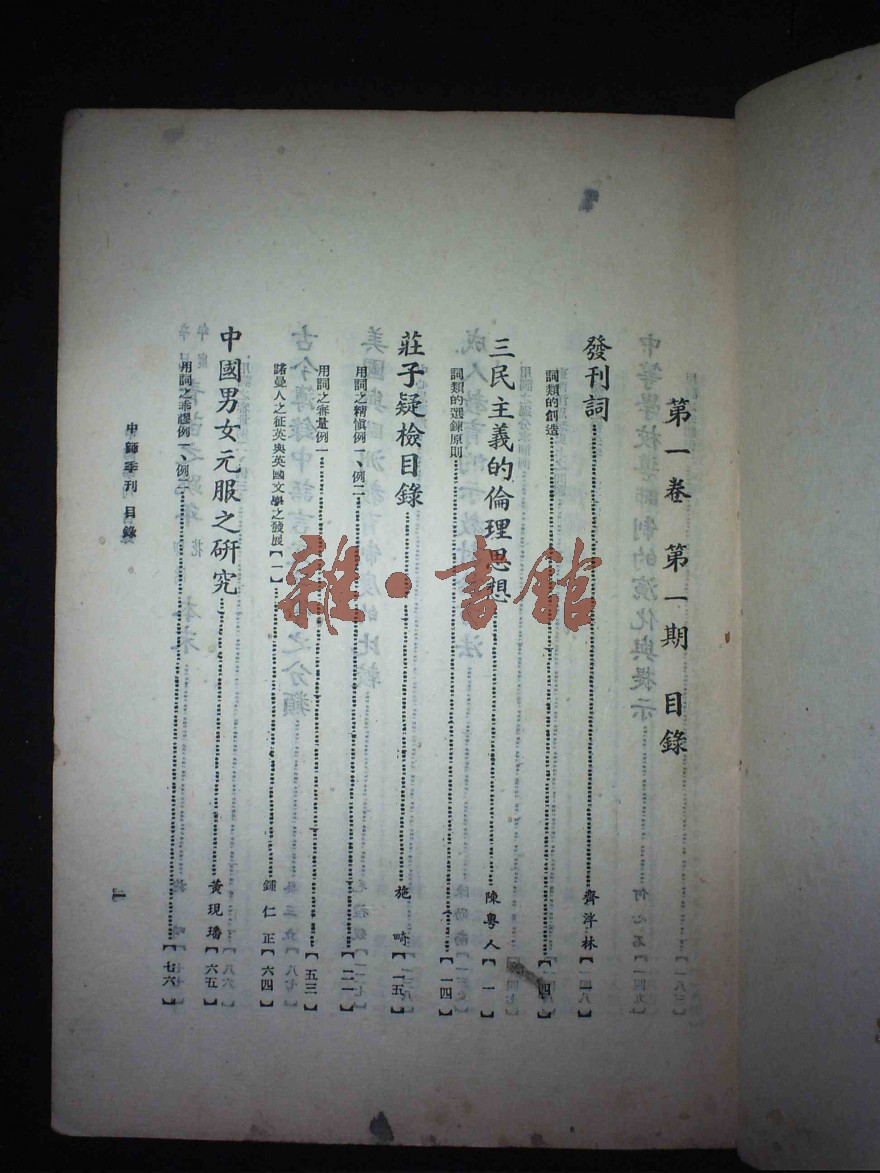 第一卷 第一期 目錄
發刊詞 齊泮林
詞類的創造【四】
三民主義的倫理思想 陳粵人【一】
詞類的選鍊原則【一四】
莊子疑檢目錄 施畸【一五】
用詞之精慎例一、例二【二一】
用詞之審量例一【五三】
諾曼人之征英與英國文學之發展【一】 鍾仁正【六四】
中國男女元服之研究 黃現璠【六五】
用詞之乖謬例一、例二【七六】
中師季刊 目錄
一
雜·書館